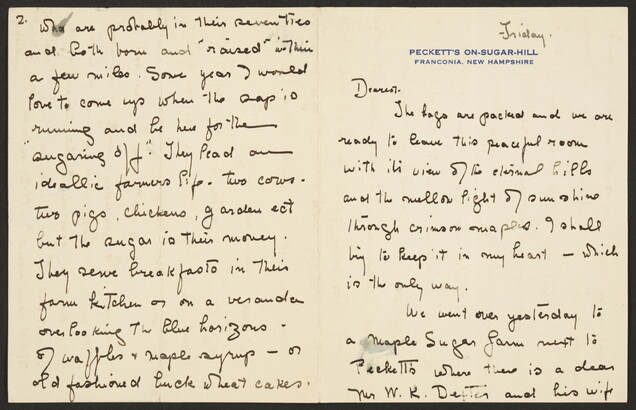 Friday.
PECKETT'S ON-SUGAR-HILL
FRANCONIA, NEW HAMPSHIRE
Dearest.
The bags are packed and we are
ready to leave this peaceful room
with its view of the eternal hills
and the mellow light of sunshine
through crimson maples. I shall
try to keep it in my heart – which
is the only way.
We went over yesterday to
a Maple Sugar farm next to
Pecketts where there is a dear
Mr W. K. Dexter and his wife
2.
who are probably in their seventies
and both born and "raised" within
a few miles. Some year I would
love to come up when the sap is
running and be here for the
"sugaring off". They lead an
ideallic farmers life. two cows.
two pigs, chickens, garden ect
but the sugar is their money.
They serve breakfasts in their
farm kitchen or on a veranda
overlooking the blue horizons -
of waffles & maple syrup – or
old fashioned buck wheat cakes.